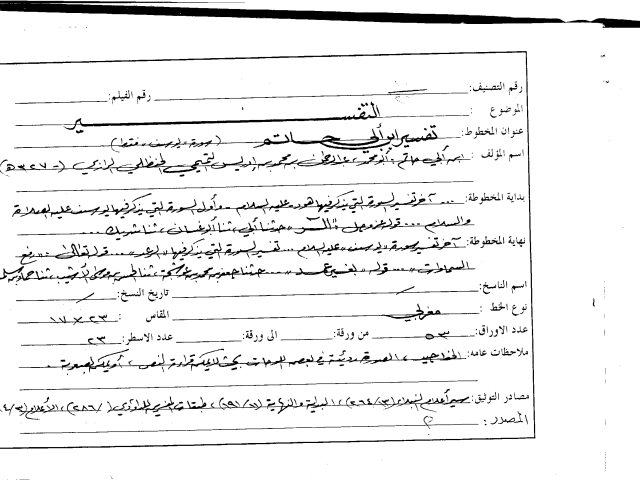 رقم التصنيف: رقم الفيلم:
الموضوع : التفسير
عنوان المخطوط: تفسير ابن أبي حاتم (سورة يوسف فقط)
اسم المؤلف: ابن أبي حاتم، أبو محمد، عبدالرحمن بن محمد بن إدريس التميمي الحنظلي الرازي (- ٣٢٧هـ)
بداية المخطوطة: ... آخر تفسير السورة التي يذكر فيها هود عليه السلام - وأول السورة التي يذكر فيها يوسف عليه الصلاة
والسلام ... قوله عز وجل "الر" حدثنا أبي، ثنا أبو غسان، ثنا شريك...
نهاية المخطوطة: آخر تفسير سورة يوسف عليه السلام ... تفسير السورة التي يذكر فيها "الرعد" ... قوله تعالى: "رفع
السماوات" ... قوله "بغير عمد" ... حدثنا جعفر بن محمد بن ثنا
اسم الناسخ: تاريخ النسخ:
نوع الخط: مغربي المقاس: ٢٣ × ١٧
عدد الاوراق: ٥٣ من ورقة: الى ورقة: عدد الاسطر: ٢٣
ملاحظات عامه: الخط جيد، الصورة رديئة في بعض اللوحات بحيث لا يمكن قراءة النص، أو يمكن بصعوبة.
مصادر التوثيق: سير أعلام النبلاء (٢٦٤/١٣)، البداية والنهاية (١٩١/١١)، طبقات المفسرين للداوودي (٢٨٦/)، الأعلام
المصدر :